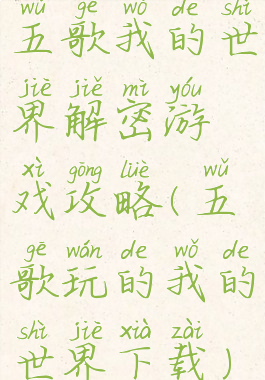 wǔ gē wǒ de shì
五歌我的世
jiè jiě mì yóu
界解密游
xì gōng lüè wǔ
戏攻略(五
gē wán de wǒ de
歌玩的我的
shì jiè xià zài
世界下载)